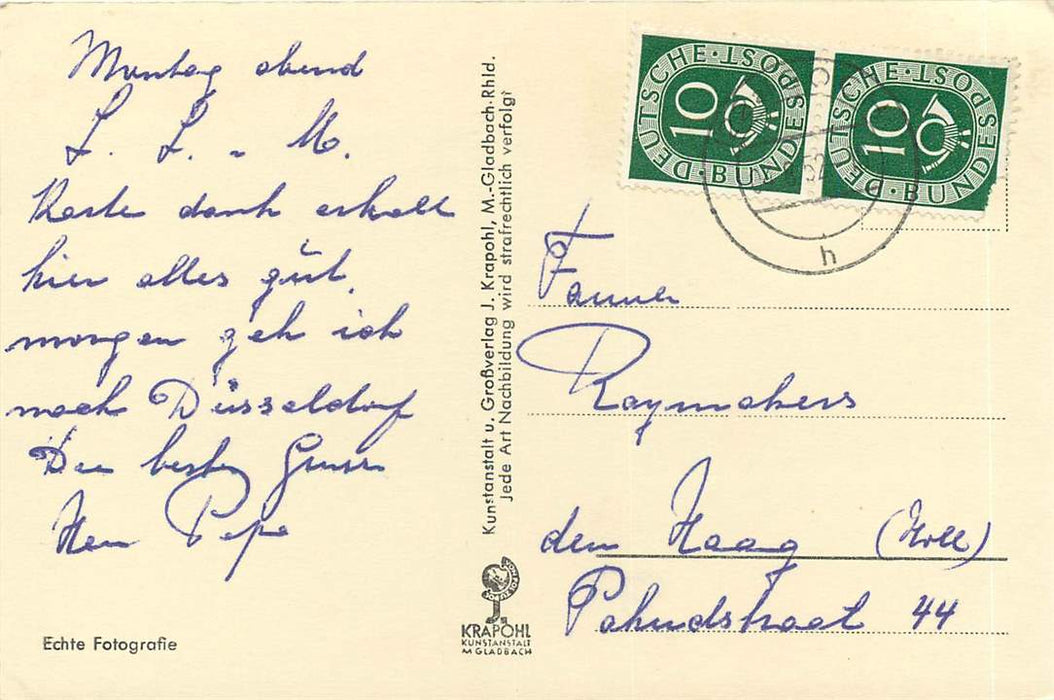 Montag abend
L. L. u. M.
Karte dank erhalt
hier alles gut.
morgen geh ich
nach Düsseldorf
Den besten Gruss
Papa
Echte Fotografie
Kunstanstalt u. Großverlag J. Krapohl, M.-Gladbach-Rhld.
Jede Art Nachbildung wird strafrechtlich verfolgt
KRAPOHL
KUNSTANSTALT
M GLADBACH
DEUTSCHE · BUNDESPOST
10
DEUTSCHE · BUNDESPOST
10
52
h
Raymakers
den Haag (Holl)
Pahudstraat 44